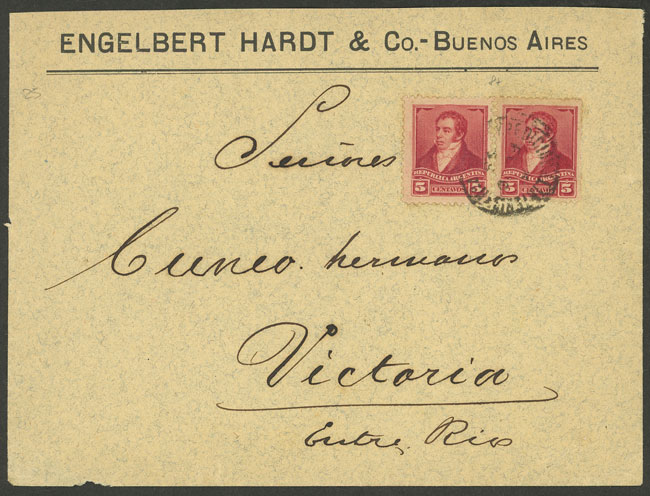 ENGELBERT HARDT & Co.-BUENOS AIRES
25
Señores
REPUBLICA ARGENTINA
5 CENTAVOS 5
REPUBLICA ARGENTINA
5 CENTAVOS 5
Cuneo hermanos
Victoria
Entre Rios